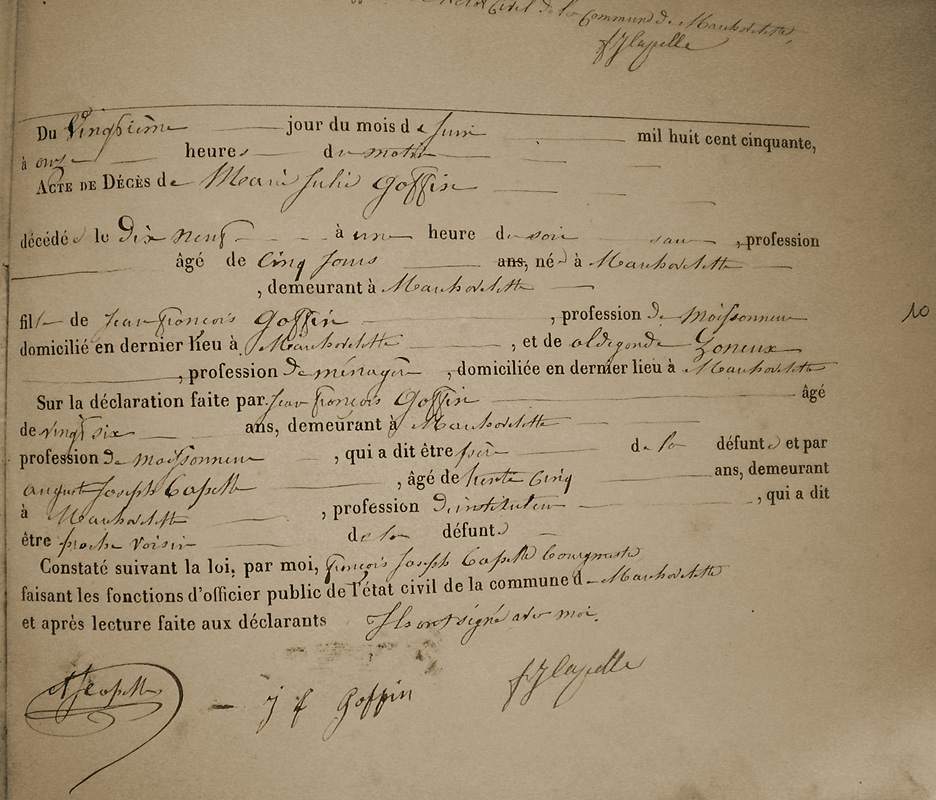 Civil de la Commune de Marchovelette,
FJ Capelle
Du Vingtième jour du mois de Juin mil huit cent cinquante,
à onze heures du matin
ACTE DE DÉCÈS de Marie Julie Goffin
décédée le Dix neuf à une heure du soir sans, profession
âgé de Cinq Jours ans, née à Marchovelette
, demeurant à Marchovelette
fille de Jean François Goffin, profession de Moissonneur
10
domicilié en dernier lieu à Marchovelette, et de aldegonde Loneux
, profession de ménagère, domiciliée en dernier lieu à Marchovelette
Sur la déclaration faite par Jean François Goffin âgé
de vingt six ans, demeurant à Marchovelette
profession de moissonneur, qui a dit être père de la défunte et par
august Joseph Capelle, âgé de trente cinq ans, demeurant
à Marchovelette, profession d'instituteur, qui a dit
être proche voisin de la défunte
Constaté suivant la loi, par moi, françois Joseph Capelle bourgmestre
faisant les fonctions d'officier public de l'état civil de la commune de Marchovelette
et après lecture faite aux déclarants Ils ont signé avec moi.
AJ Capelle
J f Goffin
FJ Capelle